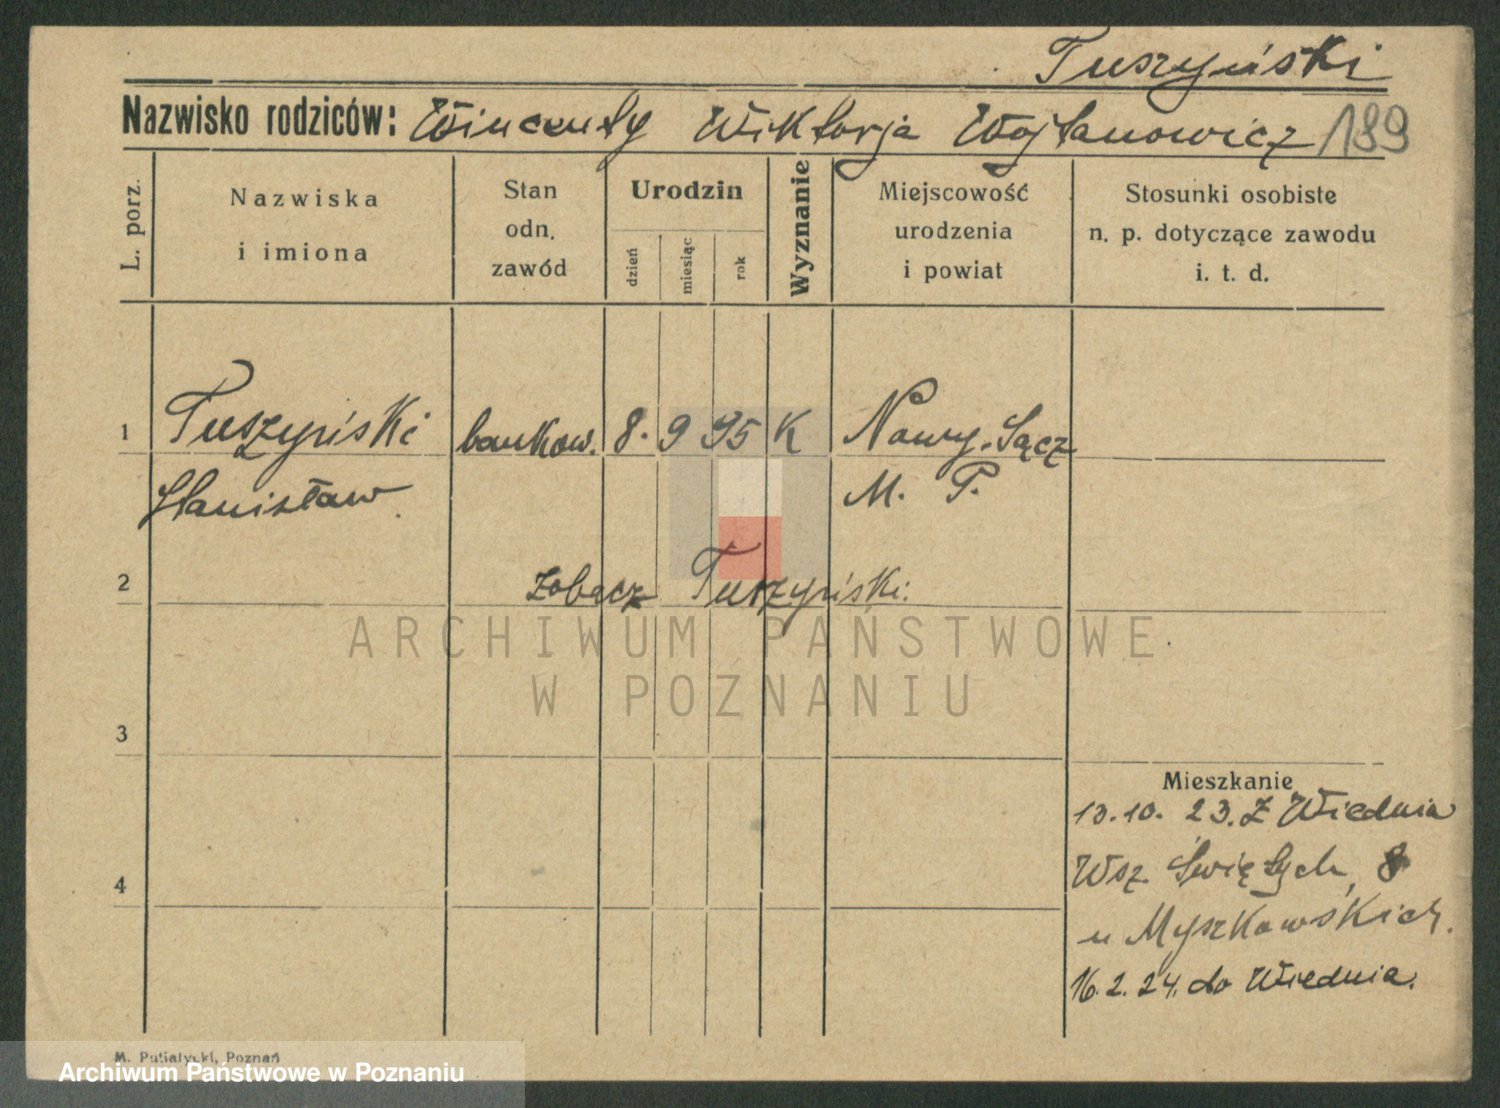 Tuszyński
Nazwisko rodziców: Wincenty Wiktorja Wojtanowicz 189
L. porz.
Nazwiska
i imiona
Stan
odn.
zawód
Urodzin
dzień
miesiąc
rok
Wyznanie
Miejscowość
urodzenia
i powiat
Stosunki osobiste
n. p. dotyczące zawodu
i. t. d.
1 Tuszyński bankow. 8. 9 95 K Nowy-Sącz
Stanisław M. P.
2 zobacz Tuszyński.
ARCHIWUM PAŃSTWOWE
W POZNANIU
3
Mieszkanie
13.10. 23. Z Wiednia
4 Wsz Świętych 8
u Myszkowskich.
16. 2. 24. do Wiednia.
M. Putiatycki, Poznań
Archiwum Państwowe w Poznaniu